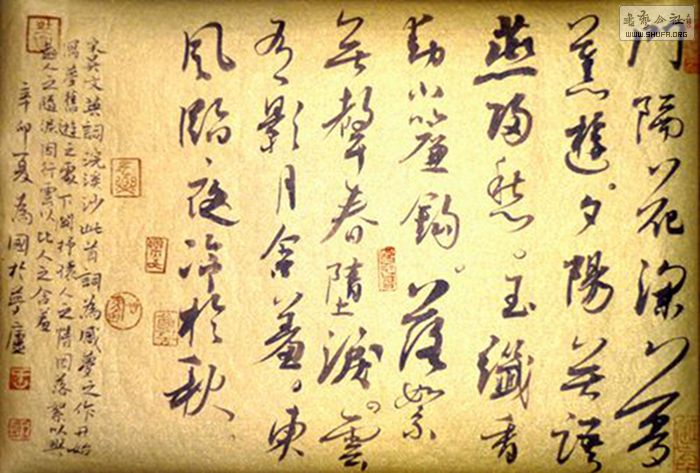 門隔花深夢
舊遊夕陽無語
燕歸愁玉纖香
動小簾鈎落絮
無聲春墮淚雲
有影月含羞東
風臨夜冷於秋
宋吳文英詞浣溪沙此首詞為感夢之作開始
寫夢舊遊之處下闋抒懷人之情因落絮以興
起人之墮淚因行雲以比人之含羞
辛卯夏為國於廬
書藝公社
WWW.SHUFA.ORG